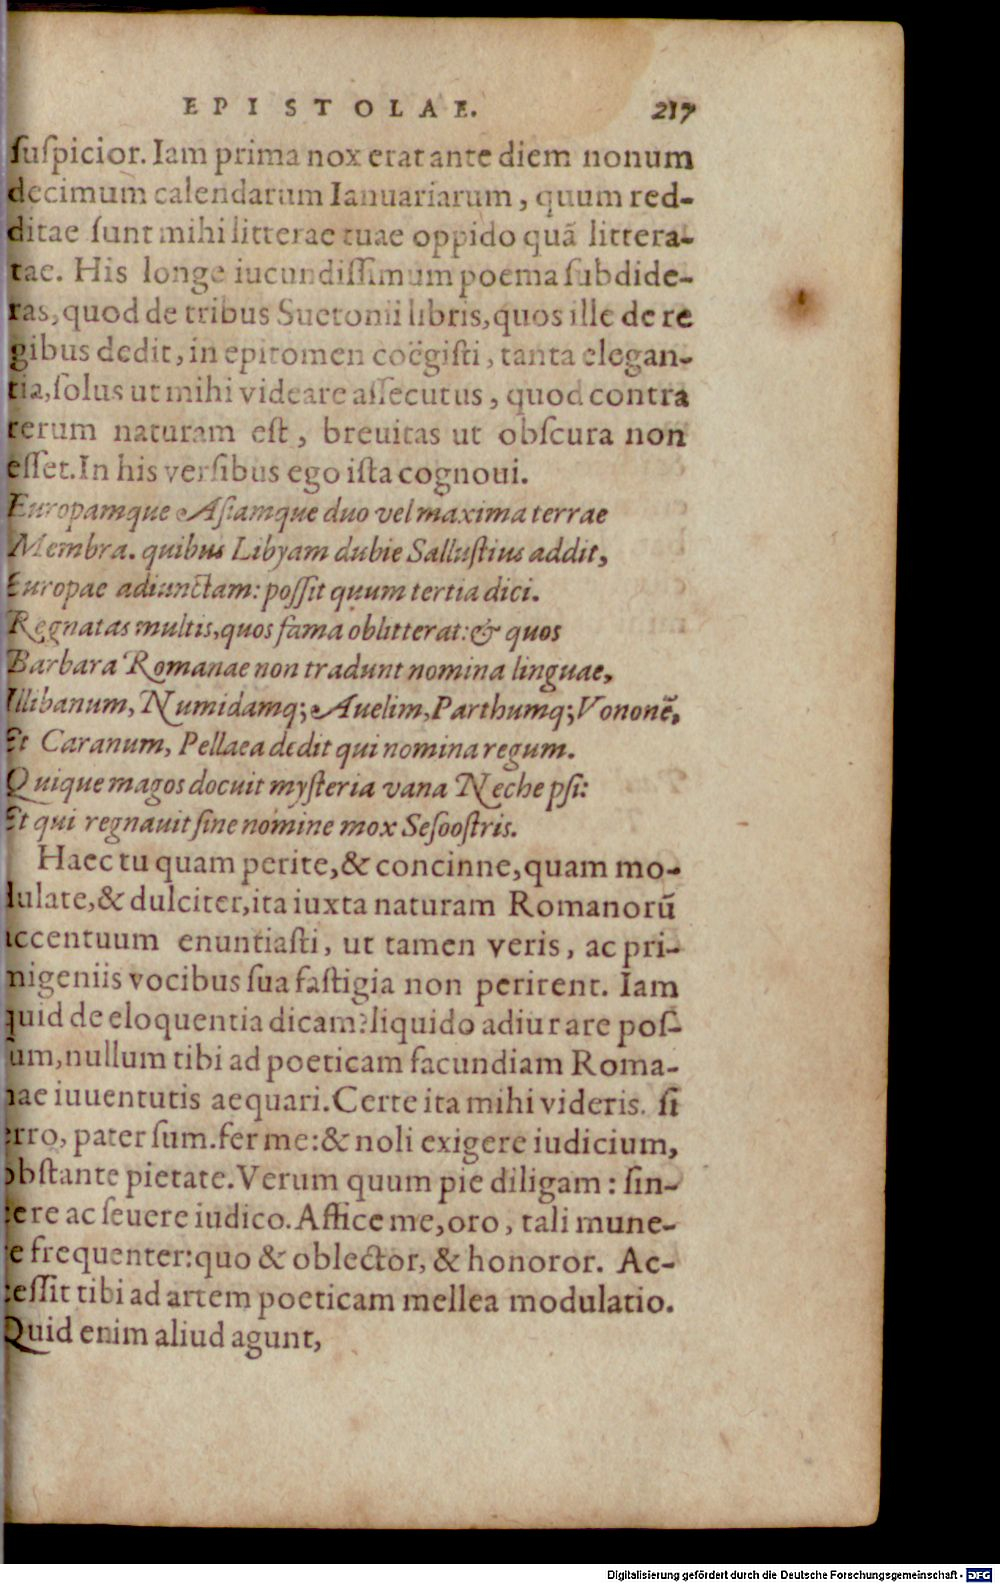 EPISTOLAE. 217
suſpicior. Iam prima nox erat ante diem nonum
decimum calendarum Ianuariarum, quum red-
ditae ſunt mihi litterae tuae oppido quã littera-
tae. His longe iucundiſſimum poema ſubdide-
ras, quod de tribus Suetonii libris, quos ille de re
gibus dedit, in epitomen coëgiſti, tanta elegan-
tia, ſolus ut mihi videare aſſecutus, quod contra
rerum naturam eſt, breuitas ut obſcura non
eſſet. In his verſibus ego iſta cognoui.
Europamque Aſiamque duo vel maxima terrae
Membra. quibus Libyam dubie Salluſtius addit,
Europae adiunctam: poſſit quum tertia dici.
Regnatas multis, quos fama oblitterat: & quos
Barbara Romanae non tradunt nomina linguae,
Illibanum, Numidamq; Auelim, Parthumq; Vononẽ,
Et Caranum, Pellaea dedit qui nomina regum.
Quique magos docuit myſteria vana Nechepſi:
Et qui regnauit ſine nomine mox Seſooſtris.
Haec tu quam perite, & concinne, quam mo-
dulate, & dulciter, ita iuxta naturam Romanorũ
accentuum enuntiaſti, ut tamen veris, ac pri-
migeniis vocibus ſua faſtigia non perirent. Iam
quid de eloquentia dicam? liquido adiurare poſ-
ſum, nullum tibi ad poeticam facundiam Roma-
nae iuuentutis aequari. Certe ita mihi videris. ſi
erro, pater ſum. fer me: & noli exigere iudicium,
obſtante pietate. Verum quum pie diligam: ſin-
cere ac ſeuere iudico. Affice me, oro, tali mune-
re frequenter: quo & oblector, & honoror. Ac-
ceſſit tibi ad artem poeticam mellea modulatio.
Quid enim aliud agunt,
Digitalisierung gefördert durch die Deutsche Forschungsgemeinschaft - DFG